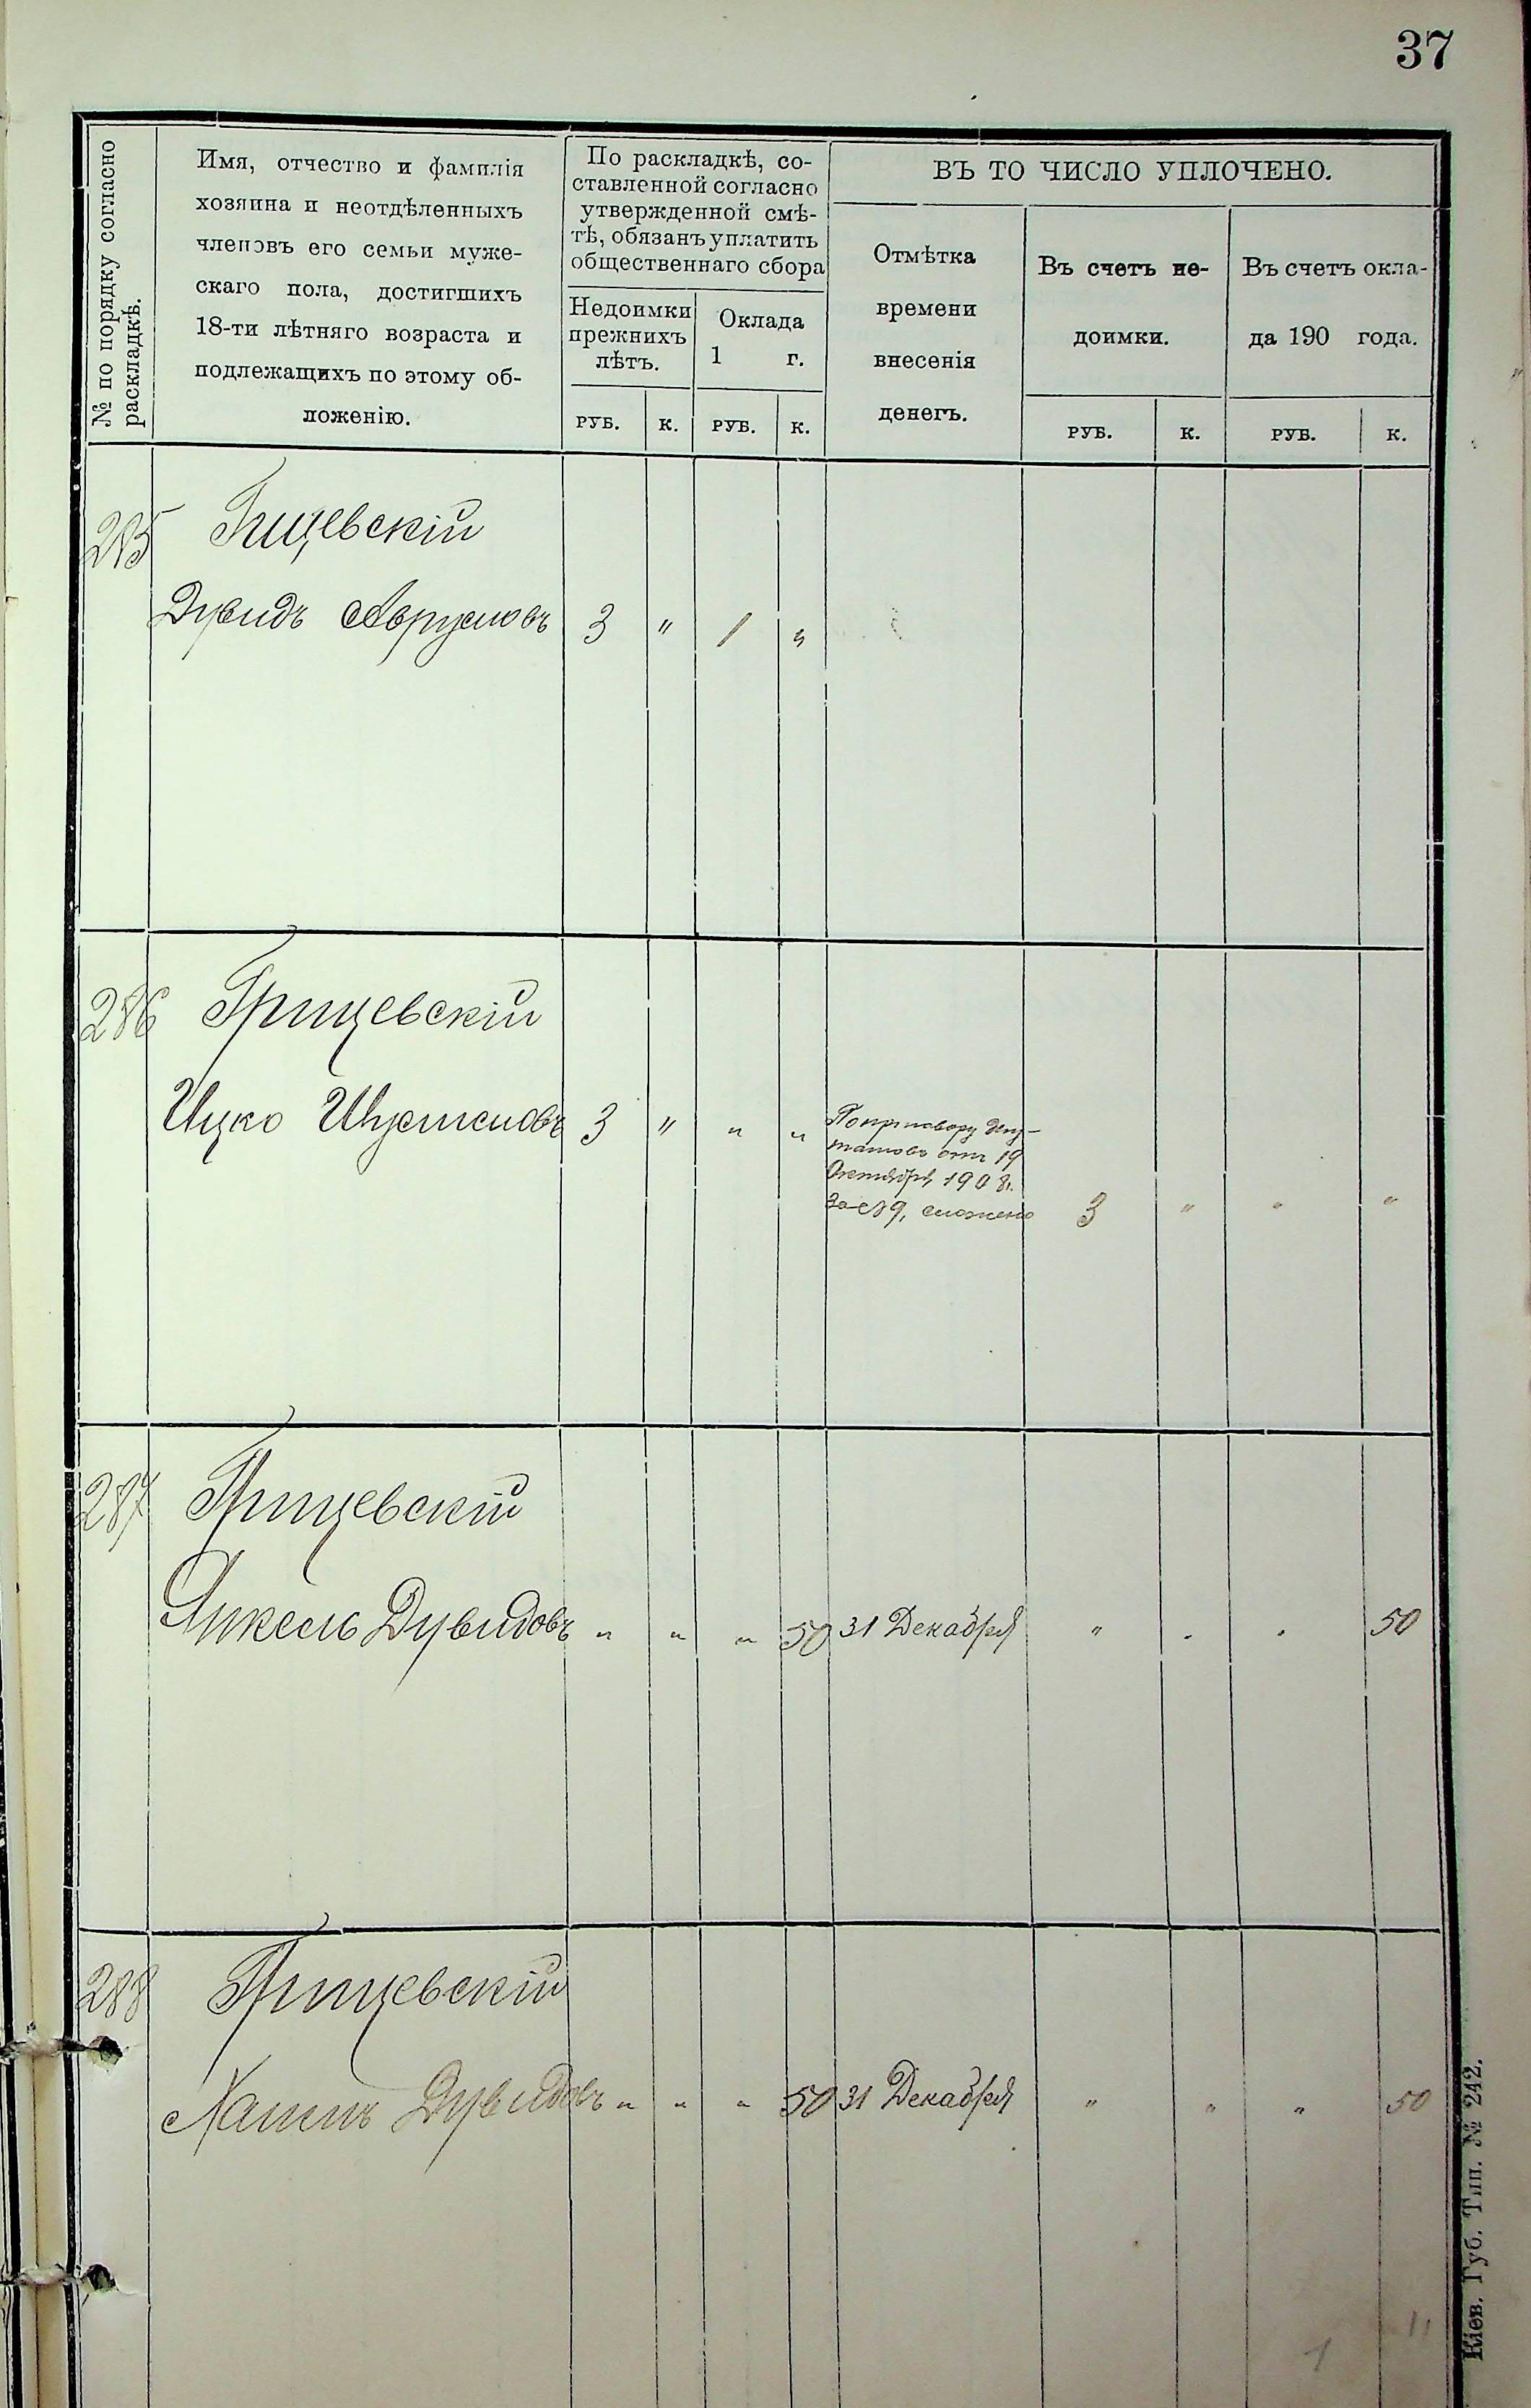 37
№ по порядку согласно
раскладкѣ.
Имя, отчество и фамилія
хозяина и неотдѣленныхъ
членовъ его семьи муже-
скаго пола, достигшихъ
18-ти лѣтняго возраста и
подлежащихъ по этому об-
ложенію.
По раскладкѣ, со-
ставленной согласно
утвержденной смѣ-
тѣ, обязанъ уплатить
общественнаго сбора
Недоимки
прежнихъ
лѣтъ.
Оклада
1 г.
ВЪ ТО ЧИСЛО УПЛОЧЕНО.
Отмѣтка
времени
внесенія
денегъ.
Въ счетъ не-
доимки.
Въ счетъ окла-
да 190 года.
РУБ. К. РУБ. К. РУБ. К. РУБ. К.
285 Гицевскій
Дувидъ Аврумовъ 3 " 1 "
286 Грицевскій
Ицко 3 " " "
По приговору депу-
татовъ отъ 19
Октября 1908 г.
за № 9, сложено 3 " " "
287 Грицевскій
Янкель Дувидовъ " " " 50 31 Декабря " " " 50
288 Грицевскій
Хаимъ Дувидовъ " " " 50 31 Декабря " " " 50
Кіев. Губ. Тип. № 242.